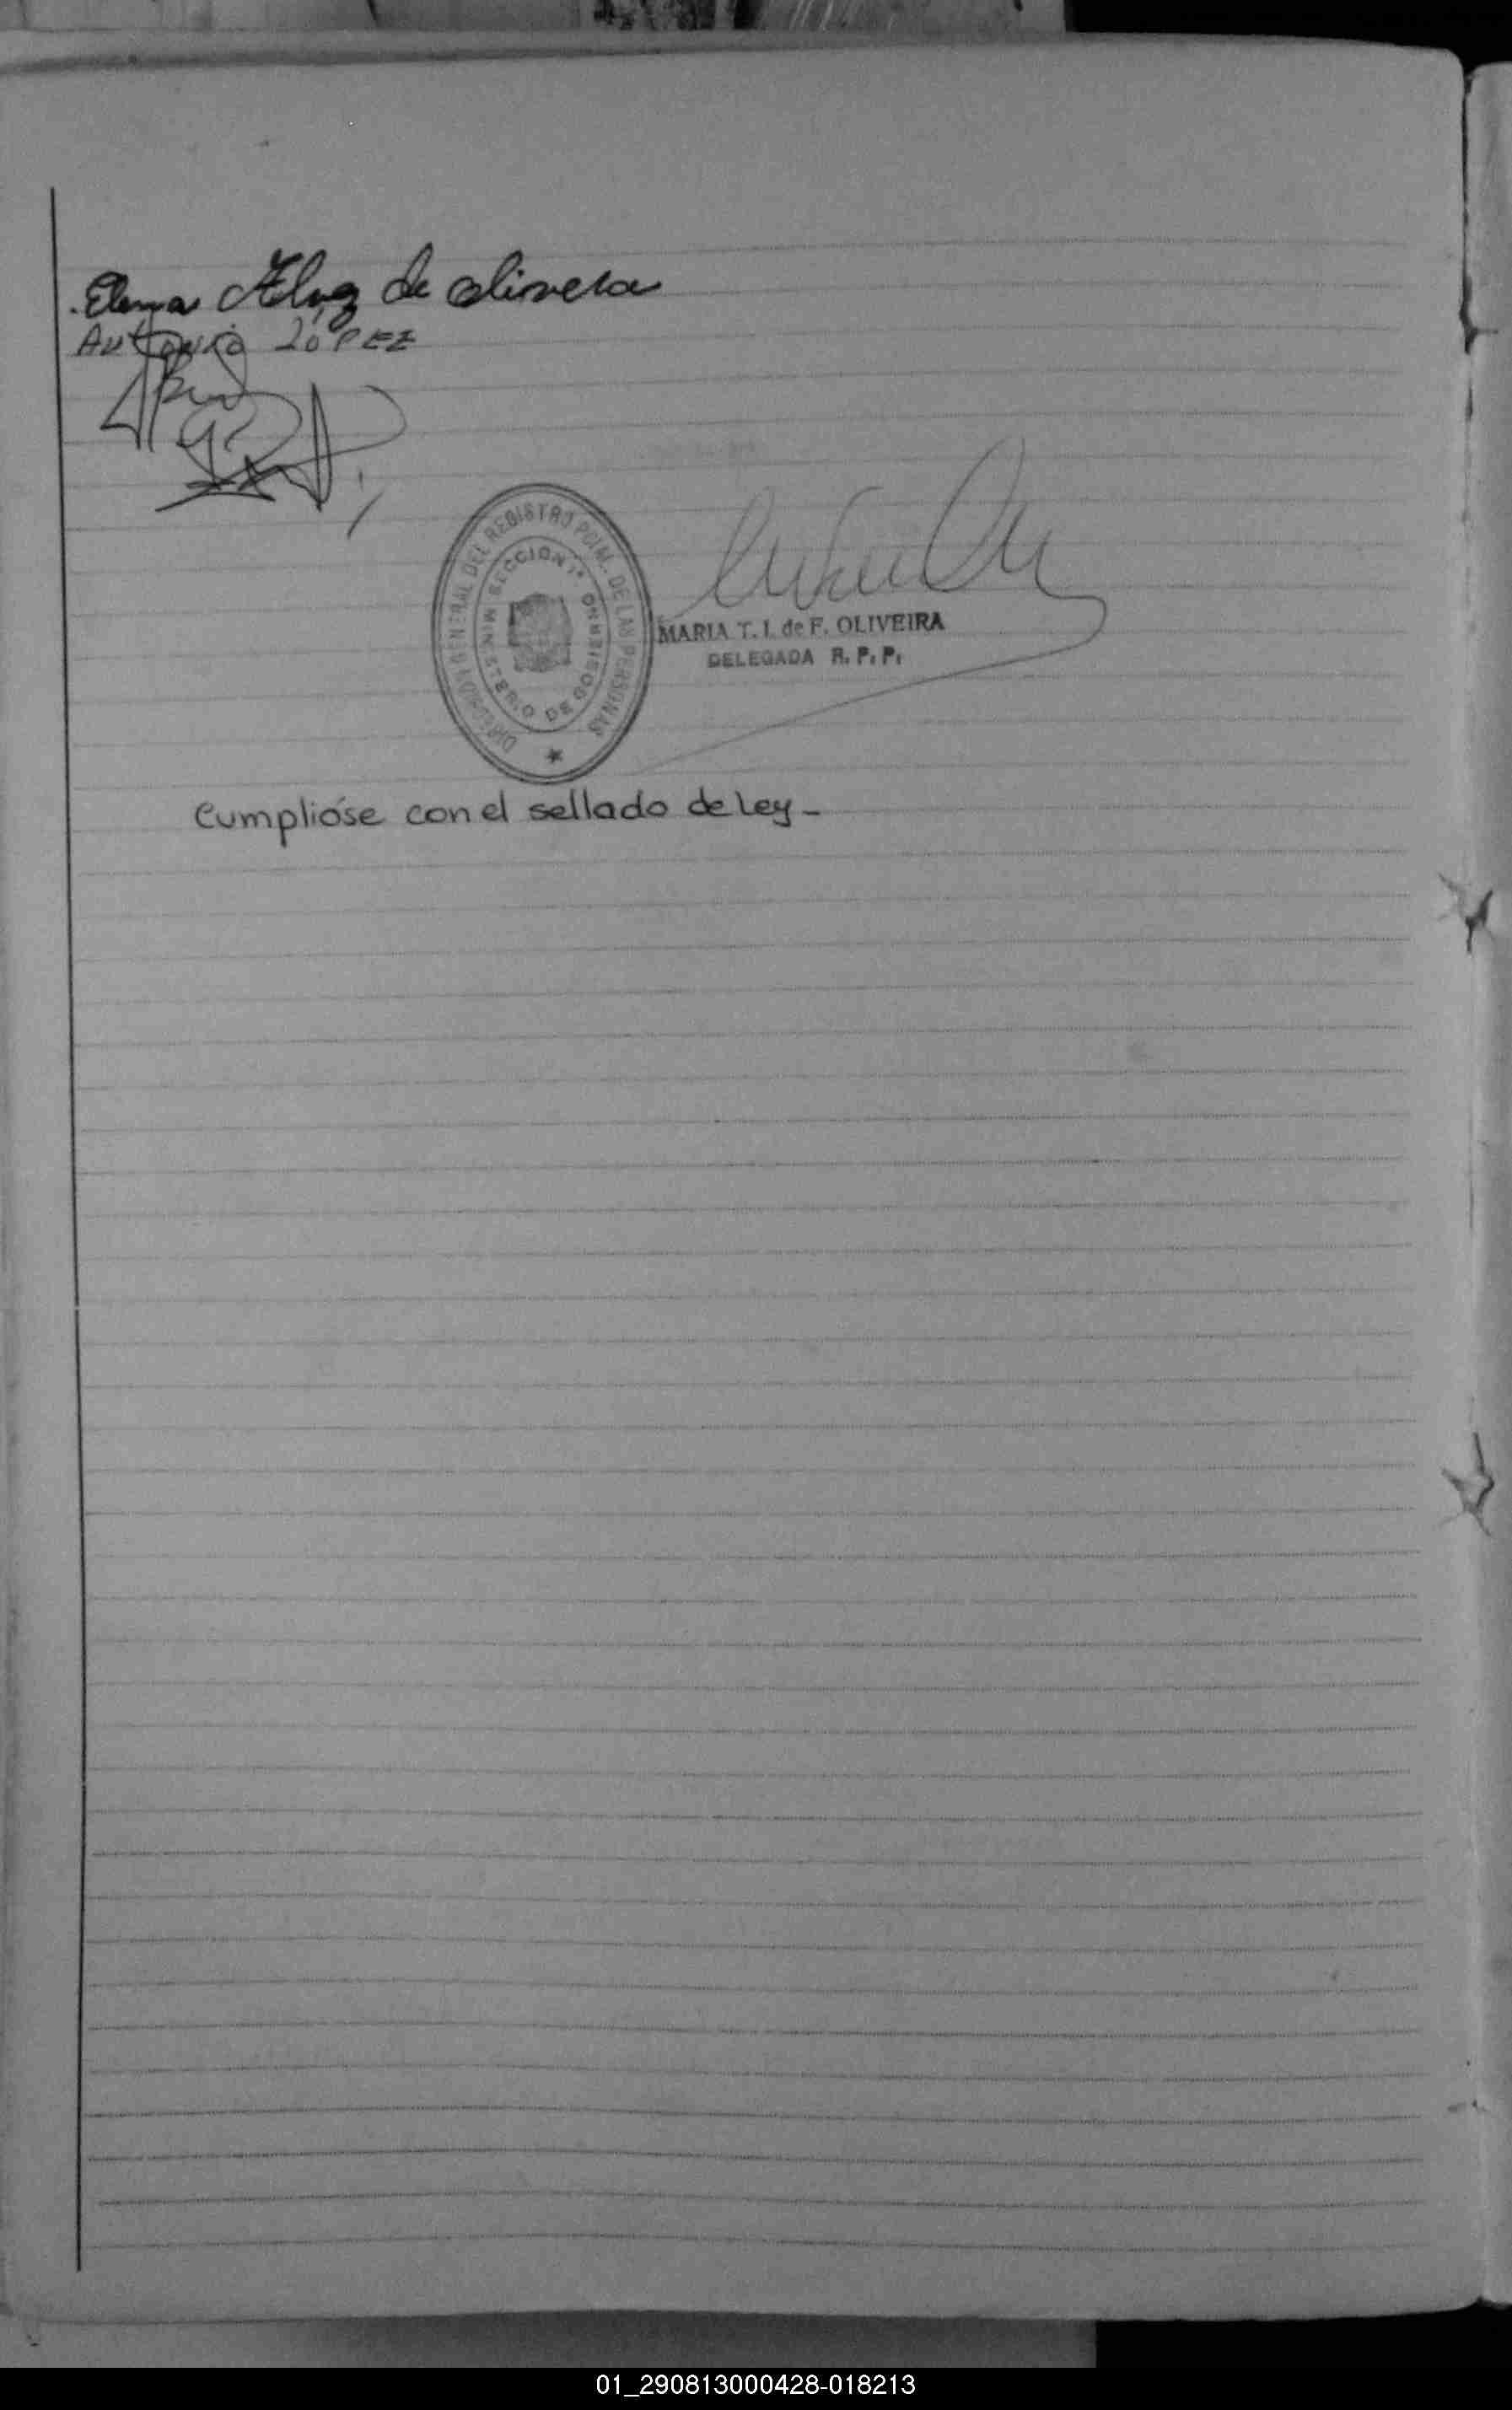 Elena Alvez de olivera
Antonio LóPEZ
DIRECCION GENERAL DEL REGISTRO PCIAL. DE LAS PERSONAS
SECCION 1ª
MINISTERIO DE GOBIERNO
MARIA T. I. de F. OLIVEIRA
DELEGADA R. P. P.
Cumplióse con el sellado de Ley -
01_290813000428-018213